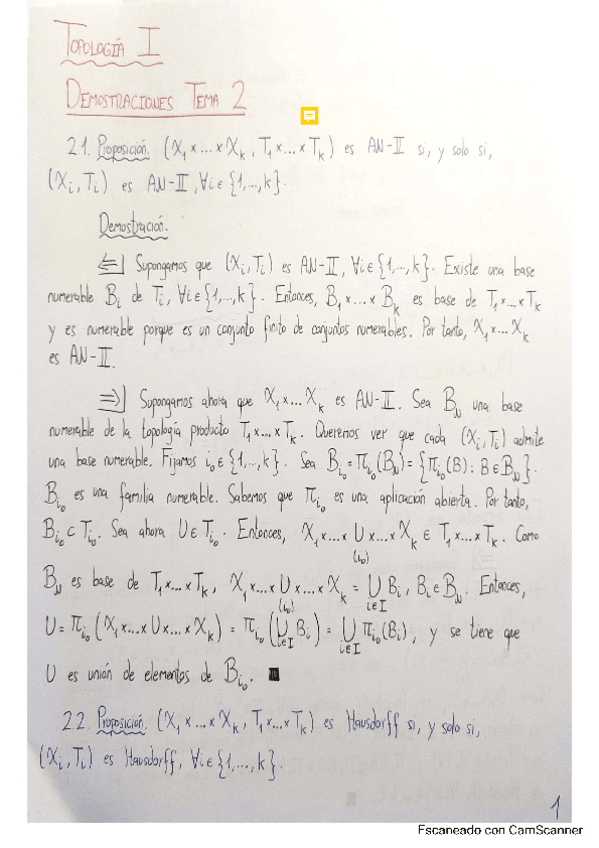 TOPOLOGÍA I
DEMOSTRACIONES TEMA 2
2.1. Proposición. (X₁×...×Xₖ, T₁×...×Tₖ) es AN-II si, y solo si,
(Xᵢ, Tᵢ) es AN-II, ∀i∈{1,...,k}.
Demostración.
⇐] Supongamos que (Xᵢ, Tᵢ) es AN-II, ∀i∈{1,...,k}. Existe una base
numerable Bᵢ de Tᵢ, ∀i∈{1,...,k}. Entonces, B₁×...×Bₖ es base de T₁×...×Tₖ
y es numerable porque es un conjunto finito de conjuntos numerables. Por tanto, X₁×...Xₖ
es AN-II.
⇒] Supongamos ahora que X₁×...Xₖ es AN-II. Sea B_N una base
numerable de la topología producto T₁×...×Tₖ. Queremos ver que cada (Xᵢ, Tᵢ) admite
una base numerable. Fijamos i₀∈{1,...,k}. Sea B_i₀ = π_i₀(B_N) = {π_i₀(B) : B∈B_N}.
B_i₀ es una familia numerable. Sabemos que π_i₀ es una aplicación abierta. Por tanto,
B_i₀ ⊂ T_i₀. Sea ahora U∈T_i₀. Entonces, X₁×...×U×...×Xₖ ∈ T₁×...×Tₖ. Como
(i₀)
B_N es base de T₁×...×Tₖ, X₁×...×U×...×Xₖ = ⋃ Bᵢ, Bᵢ∈B_N. Entonces,
(i₀) i∈I
U = π_i₀(X₁×...×U×...×Xₖ) = π_i₀(⋃ Bᵢ) = ⋃ π_i₀(Bᵢ), y se tiene que
i∈I i∈I
U es unión de elementos de B_i₀. ■
2.2. Proposición. (X₁×...×Xₖ, T₁×...×Tₖ) es Hausdorff si, y solo si,
(Xᵢ, Tᵢ) es Hausdorff, ∀i∈{1,...,k}.
1
Escaneado con CamScanner